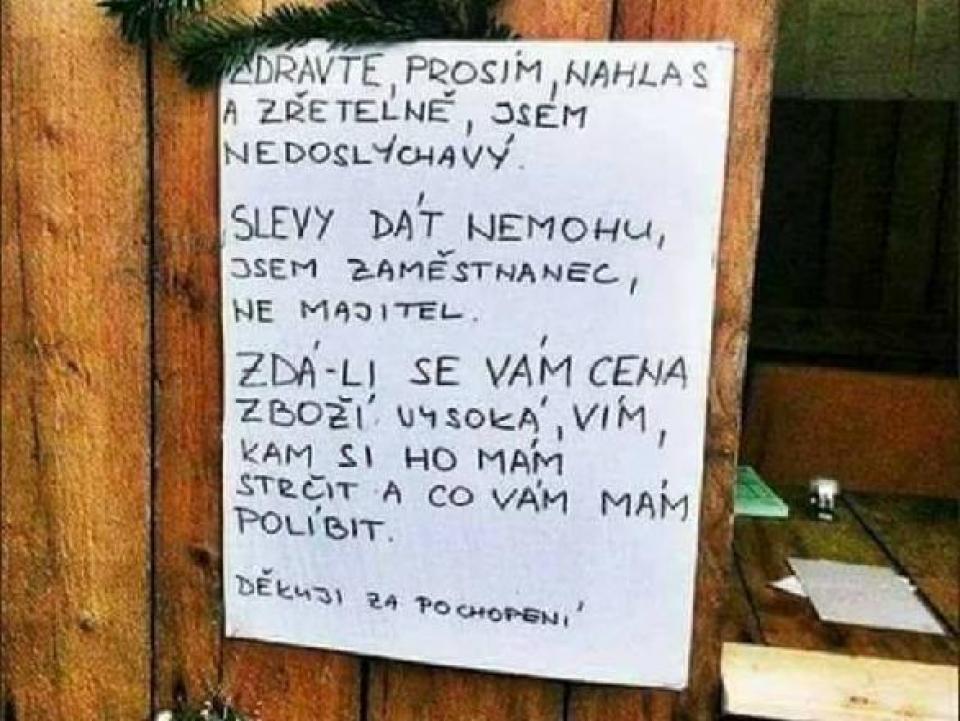 ZDRAVTE, PROSÍM, NAHLAS
A ZŘETELNĚ, JSEM
NEDOSLÝCHAVÝ.
SLEVY DÁT NEMOHU,
JSEM ZAMĚSTNANEC,
NE MAJITEL.
ZDÁ-LI SE VÁM CENA
ZBOŽÍ VYSOKÁ, VÍM,
KAM SI HO MÁM
STRČIT A CO VÁM MÁM
POLÍBIT.
DĚKUJI ZA POCHOPENÍ